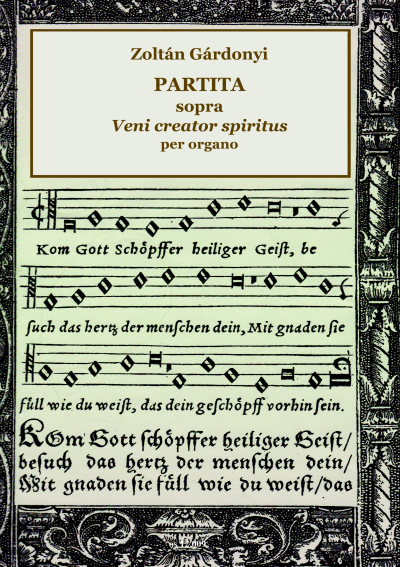 Zoltán Gárdonyi
PARTITA
sopra
Veni creator spiritus
per organo
Kom Gott Schöpffer heiliger Geiſt, be
ſuch das hertz der menſchen dein, Mit gnaden ſie
füll wie du weiſt, das dein geſchöpff vorhin ſein.
KOm Gott ſchöpffer heiliger Geiſt/
beſuch das hertz der menſchen dein/
Mit gnaden ſie füll wie du weiſt/das